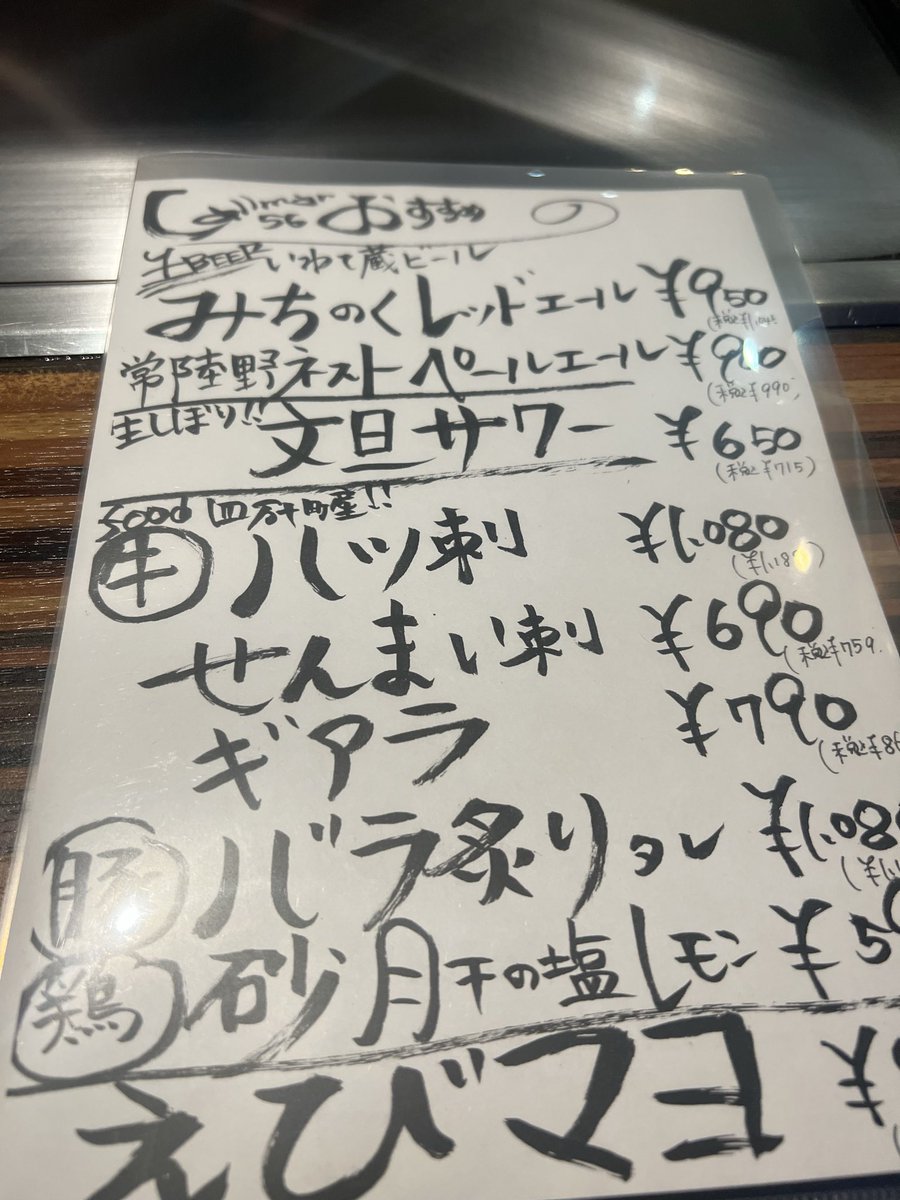 おすすめ
生BEER いわて蔵ビール
みちのくレッドエール ¥950
(税込¥1,045
常陸野ネストペールエール ¥900
(税込¥990)
生しぼり!! 文旦サワー ¥650
(税込¥715)
food 四万十町産!!
牛 ハツ刺 ¥1,080
せんまい刺 ¥690
(税込¥759
ギアラ ¥790
(税込¥86
豚 バラ炙り ¥1,080
鶏 砂肝の塩レモン ¥5
えびマヨ ¥